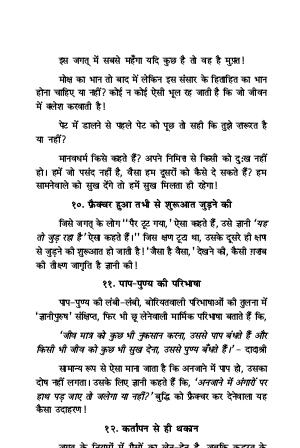 इस जगत् में सबसे महँगा यदि कुछ है तो वह है मुफ़्त!
मोक्ष का भान तो बाद में लेकिन इस संसार के हिताहित का भान
होना चाहिए या नहीं? कोई न कोई ऐसी भूल रह जाती है कि जो जीवन
में क्लेश करवाती है!
पेट में डालने से पहले पेट को पूछ तो सही कि तुझे ज़रूरत है
या नहीं?
मानवधर्म किसे कहते हैं? अपने निमित्त से किसी को दुःख नहीं
हो। हमें जो पसंद नहीं है, वैसा हम दूसरों को कैसे दे सकते हैं? हम
सामनेवाले को सुख देंगे तो हमें सुख मिलता ही रहेगा!
१०. फ्रैक्चर हुआ तभी से शुरूआत जुड़ने की
जिसे जगत् के लोग ''पैर टूट गया,' ऐसा कहते हैं, उसे ज्ञानी 'यह
तो जुड़ रहा है' ऐसा कहते हैं।'' जिस क्षण टूटा था, उसके दूसरे ही क्षण
से जुड़ने की शुरूआत हो जाती है! 'जैसा है वैसा,' देखने की, कैसी ग़ज़ब
की तीक्ष्ण जागृति है ज्ञानी की!
११. पाप-पुण्य की परिभाषा
पाप-पुण्य की लंबी-लंबी, बोरियतवाली परिभाषाओं की तुलना में
'ज्ञानीपुरुष' संक्षिप्त, फिर भी छू लेनेवाली मार्मिक परिभाषा बताते हैं कि,
'जीव मात्र को कुछ भी नुकसान करना, उससे पाप बंधते हैं और
किसी भी जीव को कुछ भी सुख देना, उससे पुण्य बँधते हैं।' - दादाश्री
सामान्य रूप से ऐसा माना जाता है कि अनजाने में पाप हो, उसका
दोष नहीं लगता। उसके लिए ज्ञानी कहते हैं कि, 'अनजाने में अंगारों पर
हाथ पड़ जाए तो जलेगा या नहीं?' बुद्धि को फ्रैक्चर कर देनेवाला यह
कैसा उदाहरण!
१२. कर्तापन से ही थकान